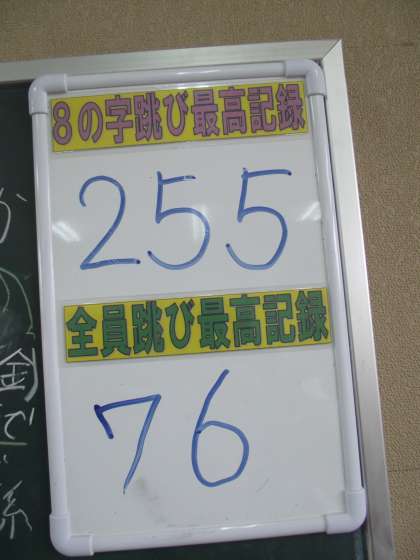 8の字跳び最高記録
255
全員跳び最高記録
76